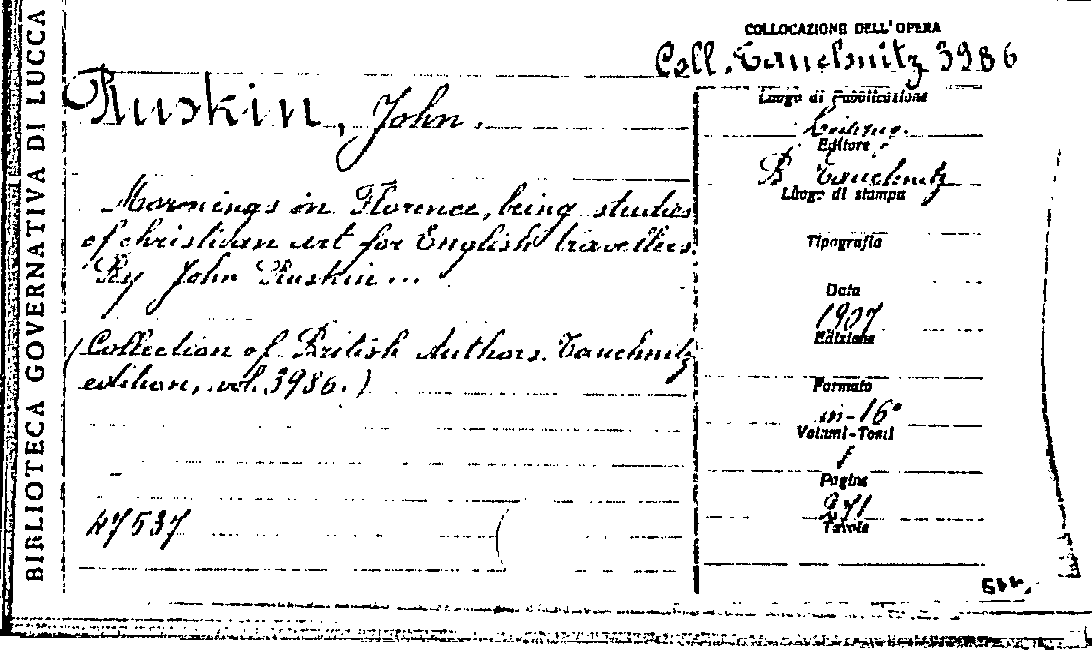 BIBLIOTECA GOVERNATIVA DI LUCCA
COLLOCAZIONE DELL'OPERA
Coll. Tauchnitz 3986
Ruskin, John.
Mornings in Florence, being studies
of christian art for English travellers.
By John Ruskin...
(Collection of British Authors. Tauchnitz
edition, vol. 3986.)
47537
Luogo di Pubblicazione
Editore
B Tauchnitz
Luogo di stampa
Tipografia
Data
1907
Edizione
Formato
in-16°
Volumi-Tomi
1
Pagine
271
Tavole